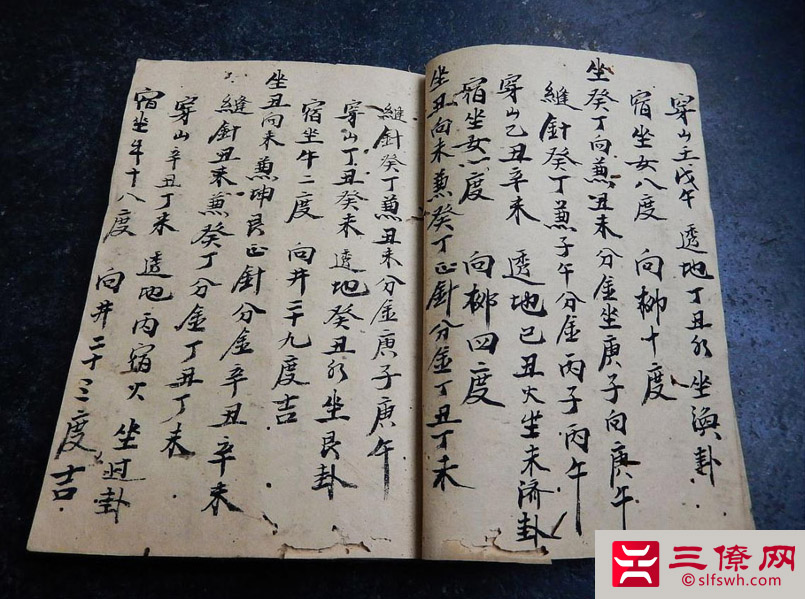 穿山壬戊午 透地丁丑水 坐渙卦
宿坐女八度 向柳十度
坐癸丁向兼丑未分金坐庚子向庚午
縫針癸丁兼子午分金丙子丙午
穿山乙丑辛未 透地已丑火坐未济卦
宿坐女一度 向柳四度
坐丑向未兼癸丁正針分金丁丑丁未
縫針癸丁兼丑未分金庚子庚午
穿山丁丑癸未 透地癸丑水坐艮卦
宿坐牛二度 向井二十九度吉
坐丑向未兼坤艮正針分金辛丑辛未
縫針丑未兼癸丁分金丁丑丁未
穿山辛丑丁未 透地丙火 坐卦
宿坐牛十八度 向井二十三度吉
三僚网
©slfswh.com